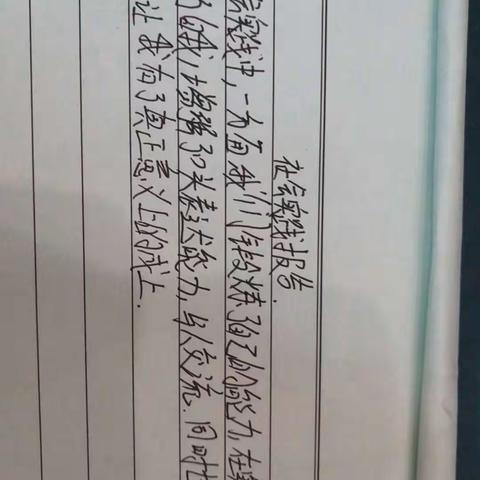 社会实践报告.
会实践中,一方面我们锻炼了自己的能力,在实
的我,增强了口头表达能力,与人交流.同时也
让我有了真正意义上的成上.